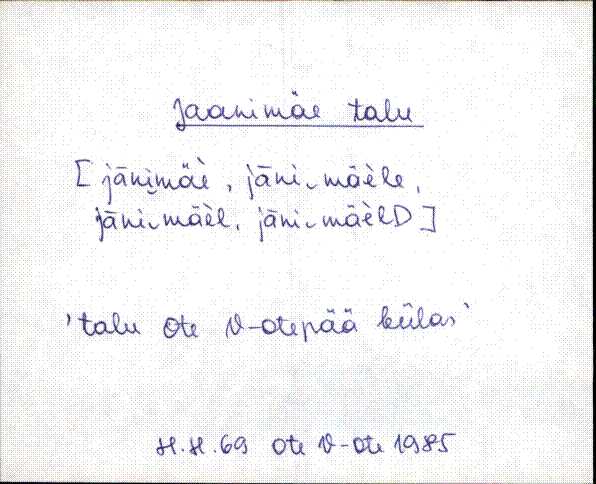 Jaanimäe talu
[jānimäè, jāni‿mäèle,
jāni‿mäèl, jāni‿mäèlD]
'talu Ote V-otepää külas'
H.H. 69 Ote V-Ote 1985